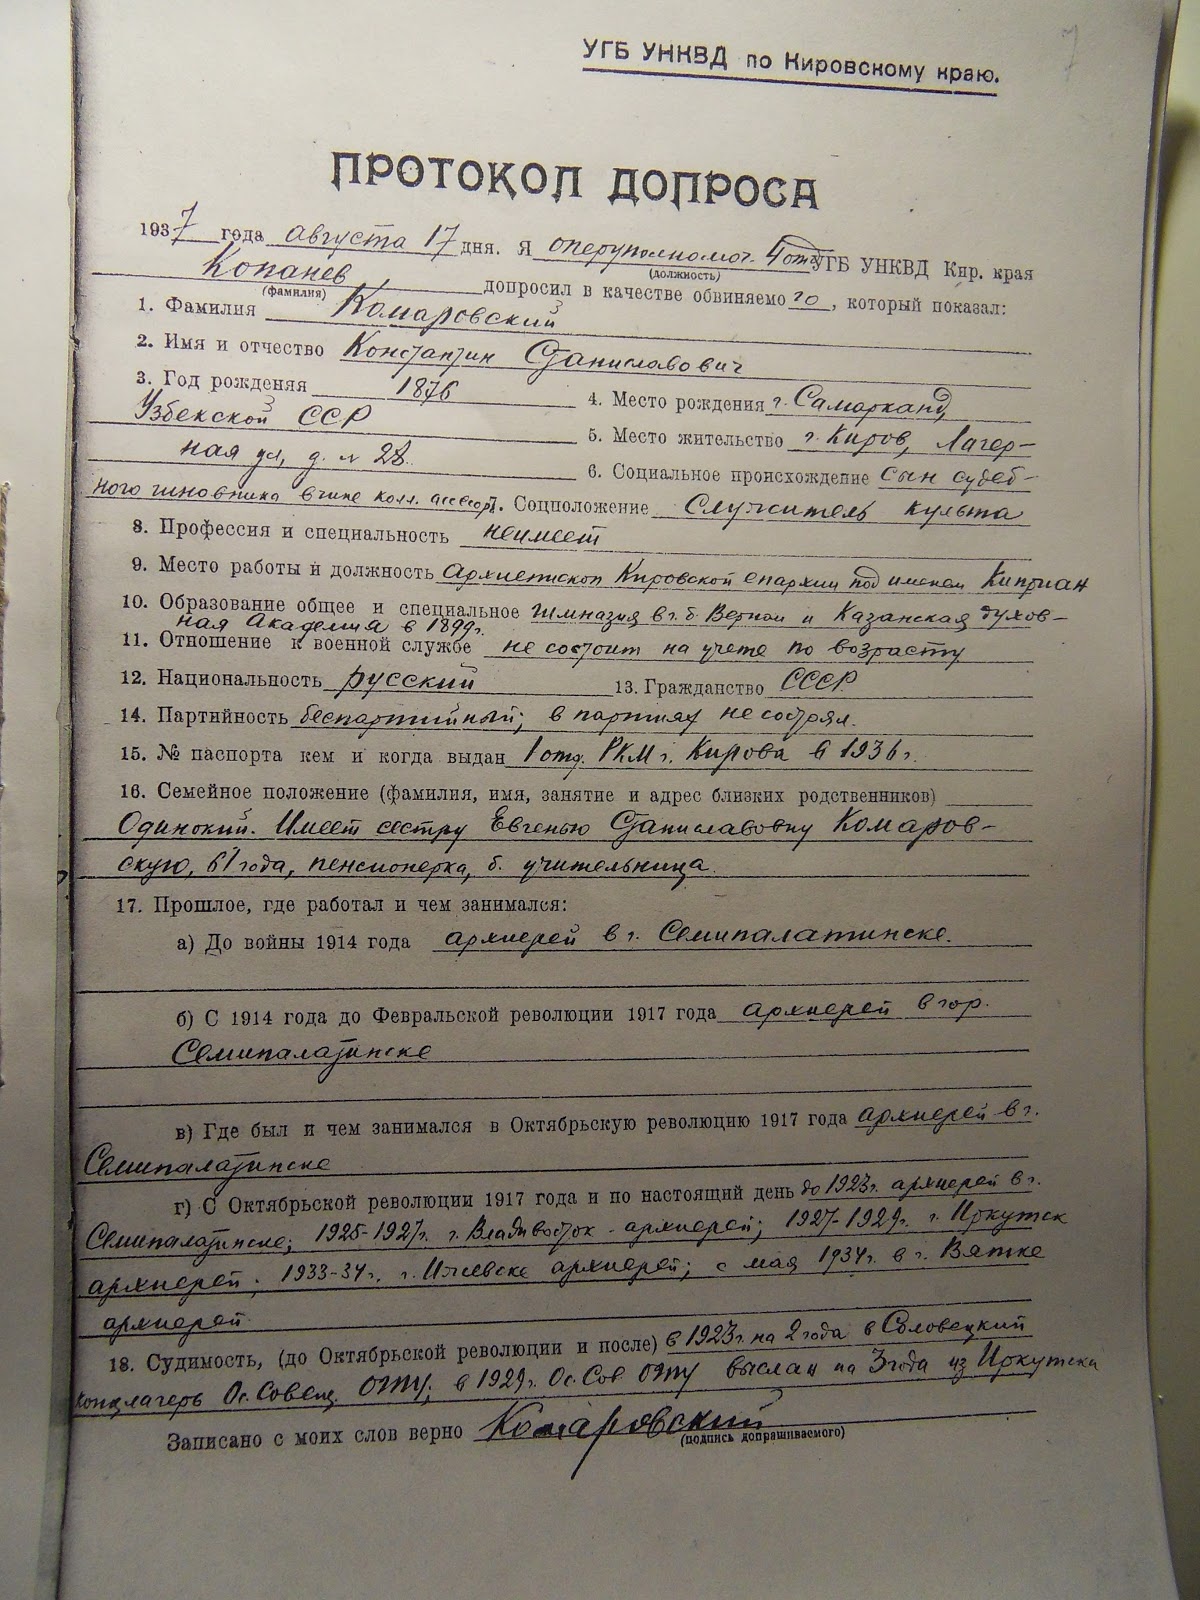 УГБ УНКВД по Кировскому краю.
ПРОТОКОЛ ДОПРОСА
1937 года августа 17 дня. Я оперуполномог. 4 отд УГБ УНКВД Кир. края
(должность)
Копанев допросил в качестве обвиняемо го, который показал:
(фамилия)
1. Фамилия Комаровский
2. Имя и отчество Константин Станиславович
3. Год рождения 1876 4. Место рождения г. Самарканд,
Узбекской ССР
5. Место жительство г. Киров, Лагер-
ная ул, д. № 28.
6. Социальное происхождение сын судеб-
ного чиновника в чине колл. ассесор. 7. Соцположение Служитель культа
8. Профессия и специальность неимеет
9. Место работы и должность Архиепископ Кировской епархии под именем Киприан
10. Образование общее и специальное гимназия в г. б. Верном и Казанская духов-
ная Академия в 1899г.
11. Отношение к военной службе не состоит на учете по возрасту
12. Национальность русский 13. Гражданство СССР
14. Партийность беспартийный; в партиях не состоял.
15. № паспорта кем и когда выдан 1 отд. РКМ г. Кирова в 1936 г.
16. Семейное положение (фамилия, имя, занятие и адрес близких родственников)
Одинокий. Имеет сестру Евгенью Станиславовну Комаров-
скую, 61 года, пенсионерка, б. учительница.
17. Прошлое, где работал и чем занимался:
а) До войны 1914 года архиерей в г. Семипалатинске.
б) С 1914 года до Февральской революции 1917 года архиерей в гор.
Семипалатинске
в) Где был и чем занимался в Октябрьскую революцию 1917 года архиерей в г.
Семипалатинске
г) С Октябрьской революции 1917 года и по настоящий день до 1923г. архиерей в г.
Семипалатинске; 1925-1927г. г. Владивосток - архиерей; 1927-1929г. г. Иркутск
архиерей; 1933-34г. г. Ижевске архиерей; с мая 1934г. в г. Вятке
архиерей
18. Судимость, (до Октябрьской революции и после) в 1923г. на 2 года в Соловецкий
концлагерь Ос. Совещ. ОГПУ; в 1929г. Ос. Сов ОГПУ выслан на 3 года из Иркутска
Записано с моих слов верно Комаровский
(подпись допрашиваемого)